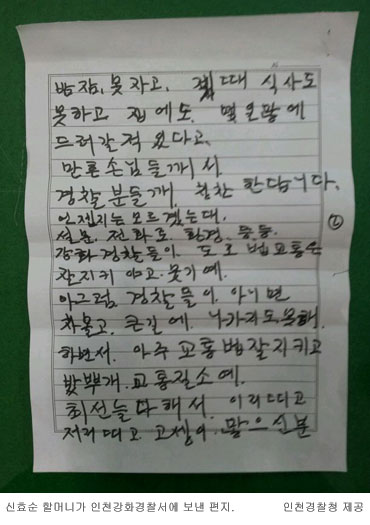 밤잠, 못자고, 젤때 식사도
못하고 집에도, 몇일만에
드러갈적 있다고,
만은손님들까서
경찰분들깨, 칭찬 한답니다.
언젠지는 모르겠는대,
②
설문, 전화로, 환경, 등등,
강화경찰들이 도로 법교통순
잘지키 야고 묻기에,
아그럼 경찰들이 아니면
차몰고, 큰길에, 나가지도못해,
하면서, 아주 교통법잘지키고
밨뿌개, 교통질소에,
최선늘다해서, 이리띠고
저리띠고 고생이, 많으신분
신효순 할머니가 인천강화경찰서에 보낸 편지.
인천경찰청 제공